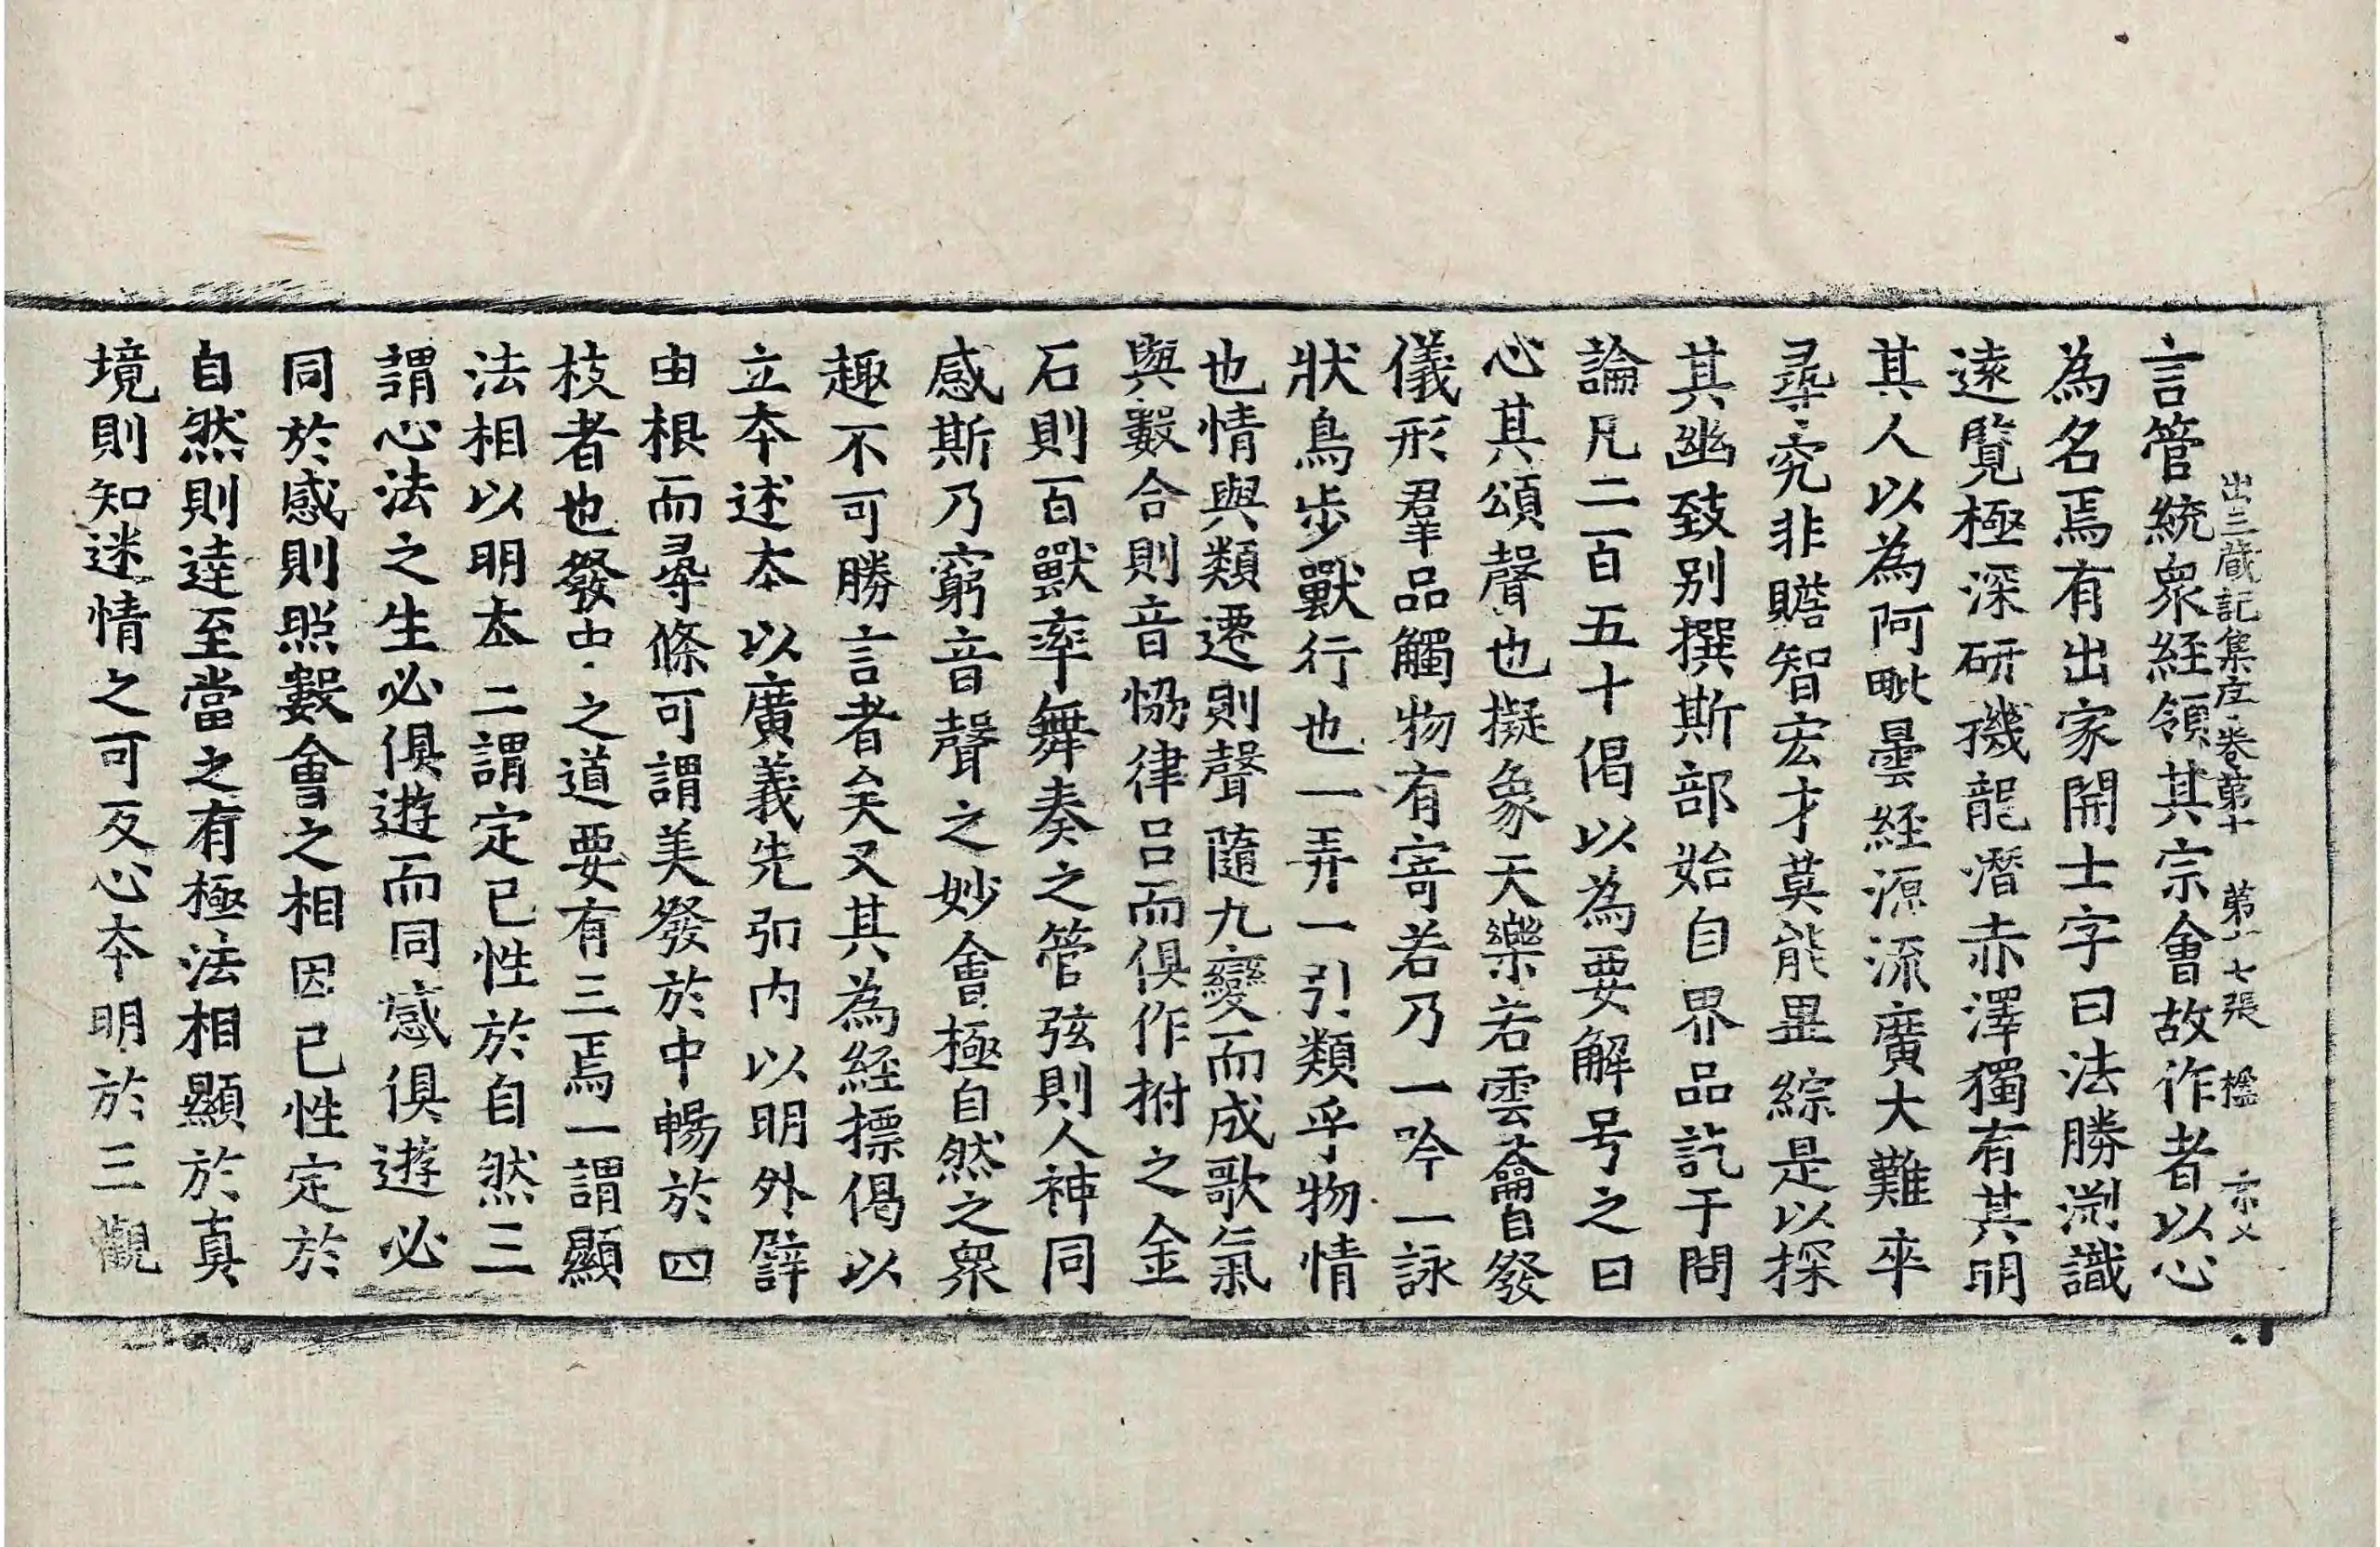 出三蔵記集序卷第十 第十七張 楹
言管統衆経領其宗會故作者以心
為名焉有出家開士字曰法勝渕識
遠覧極深研機龍潛赤澤獨有其明
其人以為阿毗曇経源流廣大難卒
尋究非贍智宏才莫能畢綜是以探
其幽致别撰斯部始自界品訖于問
論凡二百五十偈以為要解号之曰
心其頌聲也擬象天樂若雲籥自發
儀形羣品觸物有寄若乃一吟一詠
狀鳥步獸行也一弄一引類乎物情
也情與類遷則聲隨九變而成歌氣
與數合則音恊律吕而俱作拊之金
石則百獸率舞奏之管弦則人神同
感斯乃窮音聲之妙會極自然之衆
趣不可勝言者矣又其為経標偈以
立夲述夲以廣義先弘内以明外譬
由根而尋條可謂美發於中暢於四
枝者也發中之道要有三焉一謂顯
法相以明夲二謂定已性於自然三
謂心法之生必俱遊而同感俱遊必
同於感則照數會之相因已性定於
自然則達至當之有極法相顯於真
境則知迷情之可反心夲明於三觀